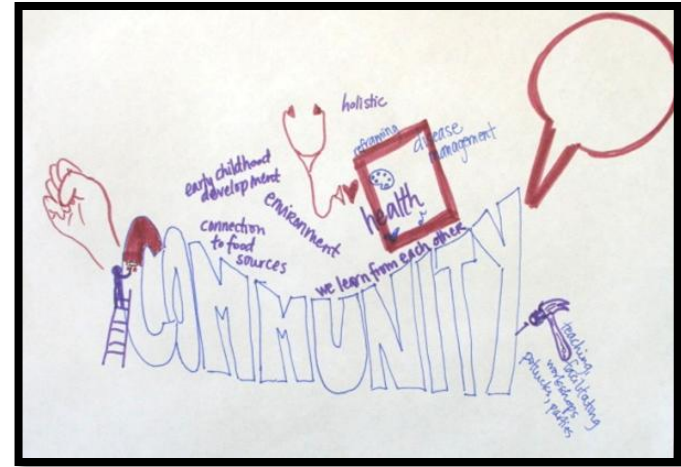 holistic
reframing
disease
management
early childhood
development
environment
health
connection
to food
sources
we learn from each other
COMMUNITY
teaching,
facilitating
workshops
potlucks, parties